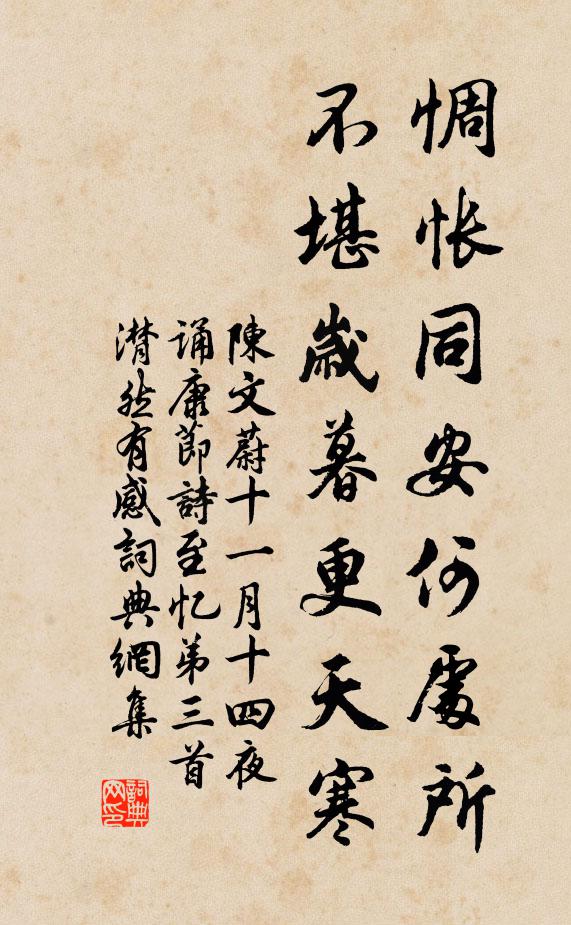 惆怅同安何處所
不堪歳暮更天寒
陳文蔚十一月十四夜
诵康節詩至忆弟三首
潸然有感詞典網集
詞典网印